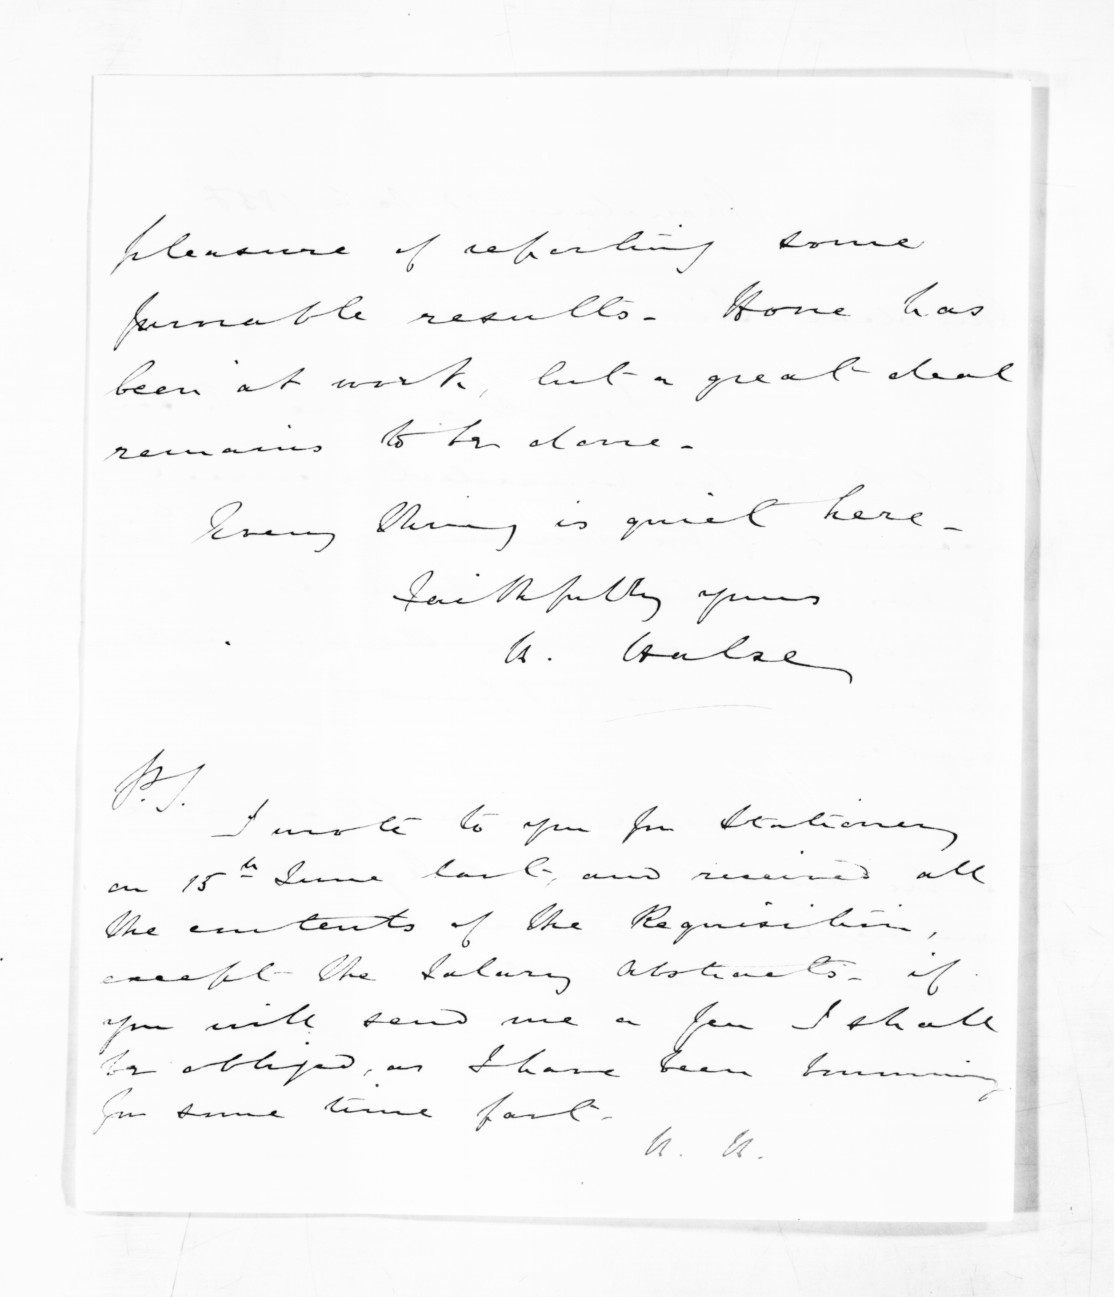 pleasure of reporting some
favorable results. Hone has
been at work, but a great deal
remains to be done.
Every thing is quiet here.
Faithfully yours
H. Halse
P.S.
I wrote to you for Stationery
on 15th June last, and received all
the contents of the Requisition,
except the Salary Abstracts. if
you will send me a few I shall
be obliged, as I have been borrowing
for some time past.
H. H.